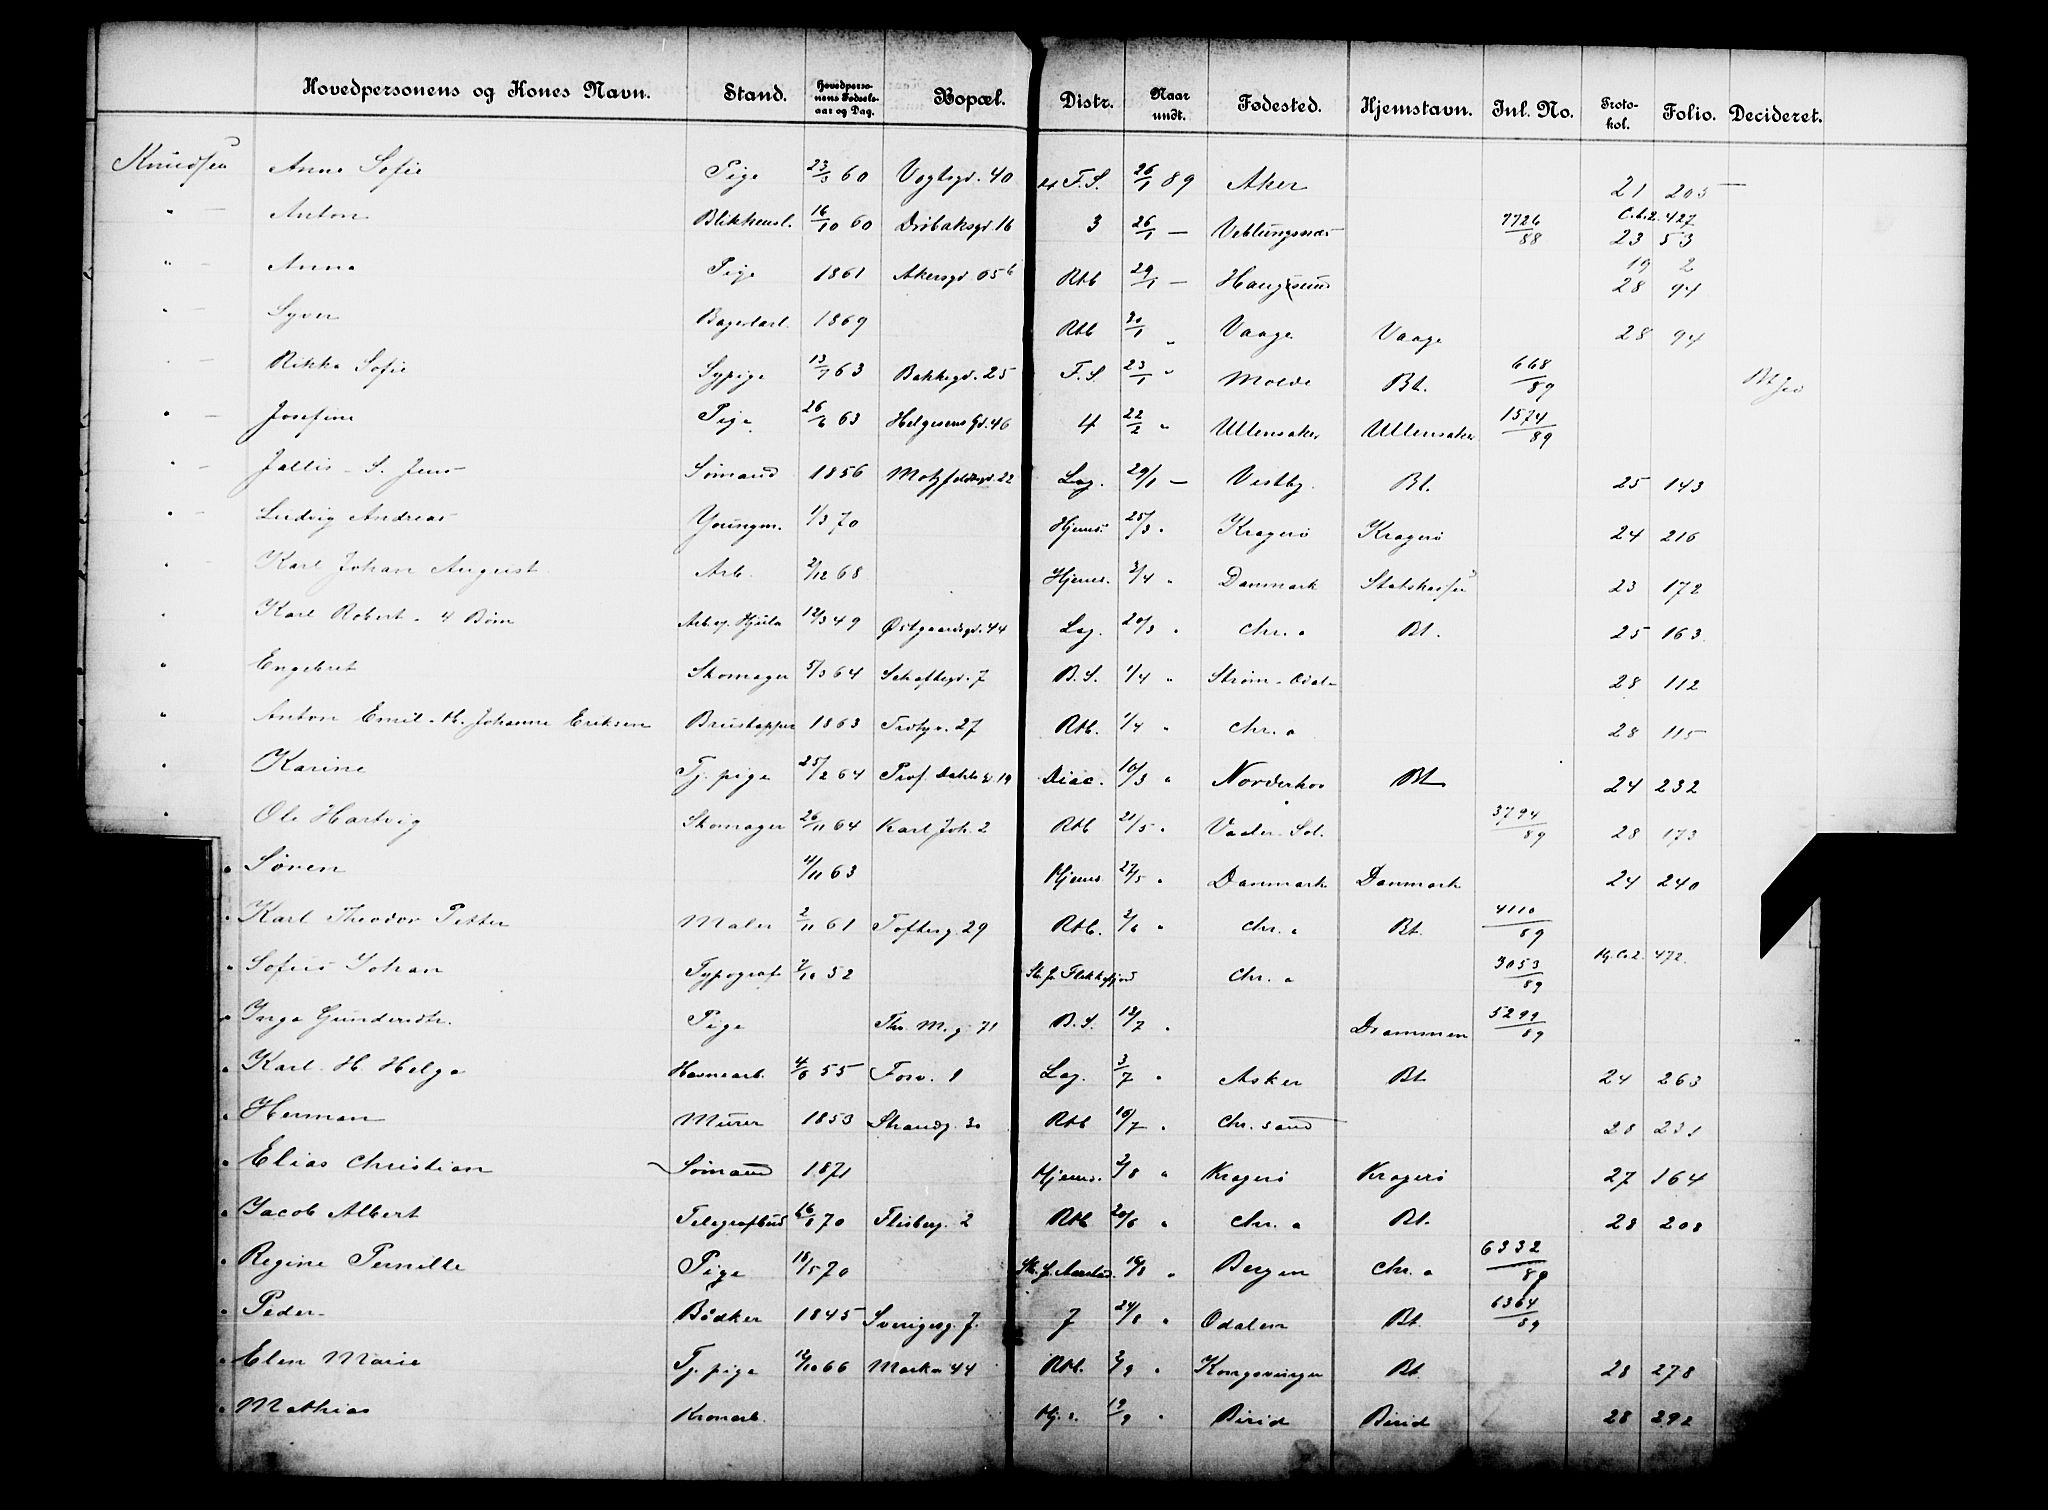 Hovedpersonens og Kones Navn. Stand. Hovedpersonens Fødselsaar og Dag. Bopæl. Distr. Naar undt. Fødested. Hjemstavn. Inl. No. Protokol. Folio. Decideret.
Knudsen Anna Sofie Pige 23/3 60 Vogtsgd. 40 F.S. 26/1 89 Aker 21 205
" — Anton Blikkensl. 16/10 60 Drøbaksgd. 16 3 26/1 — Veblungsnes 7726/88 C.b.2. 427 23 53
" — Anna Pige 1861 Akersgd. 65 b Rtb 29/1 — Haugesund 19 2 28 94
" — Syver Bagerlærl. 1869 Rtb 30/1 " Vaage Vaage 28 94
" — Rikka Sofie Sypige 13/7 63 Bakkegd. 25 F.S. 23/1 " Molde Bt. 668/89
" — Josefine Pige 26/6 63 Helgesens Gd. 46 4 22/2 " Ullensaker Ullensaker 1574/89
" — Jallis - S. Jens Sømand 1856 Motzfeldtsgd. 22 Lag. 29/1 — Vestby. Bt. 25 143
" — Ludvig Andreas Youngm. 1/3 70 Hjems. 25/3 " Kragerø Kragerø 24 216
" Karl Johan August Arb. 2/12 68 Hjems. 3/4 " Danmark Statskassen 23 172
" Karl Robert - 4 Børn Arb. v. Hjula 12/3 49 Østgaardsgd. 44 Lag. 20/3 " Chr. a Bt. 25 163
" Engebret Skomager 5/3 64 Schaftesgd. 7 B.S. 1/4 " Strøm - Odal - 28 112
" Anton Emil - M. Johanne Eriksen Brustapper 1863 Trdtgn. 27 Rtb. 1/4 " Chr. a 28 115
" Karine Tj. pige 25/2 64 Prof. Dahls G. 19 Diac. 10/3 " Norderhov Bt 24 232
" Ole Hartvig Skomager 26/11 64 Karl Joh. 2 Rtb 21/5 " Vaaler. Sol. 3794/89 28 173
" Søren 11/11 63 Hjems 27/5 " Danmark Danmark 24 240
" Karl Theodor Petter Maler 2/11 61 Tofteg. 29 Rtb. 2/6 " Chr. a Bt. 4110/89
" Sofus Johan Typograf 7/10 52 Sk. fr. Flekkefjord Chr. a 3053/89 472
" Inga Gundersdtr. Pige Thv. M. g. 71 B.S. 13/7 " Drammen 5299/89
" Karl. H. Helga Havnearb. 4/6 55 Forv. 1 Lag. 3/7 " Asker Bt 24 263
" Herman Murer 1853 Strandg. 30 Rtb 10/7 " Chr. sand 28 231
" Elias Christian Sømand 1871 Hjems. 2/8 " Kragerø Kragerø 27 164
" Jacob Albert Telegrafbud 16/1 70 Flisberg. 2 Rtb 20/6 " Chr. a Bt. 28 208
" Regine Pernille Pige 18/5 70 16/8 " Bergen Chr. a 6332/89
" Peder - Bødker 1845 Sverigesg. 7. 7 24/8 " Odalen Bt. 6364/89
" Elen Marie Tj. pige 12/10 66 Markv. 44 Rtb. 2/9 " Kongsvinger Bt 28 278
" Mathias Kronarb. Hj. s. 13/9 " Birid Birid 28 292